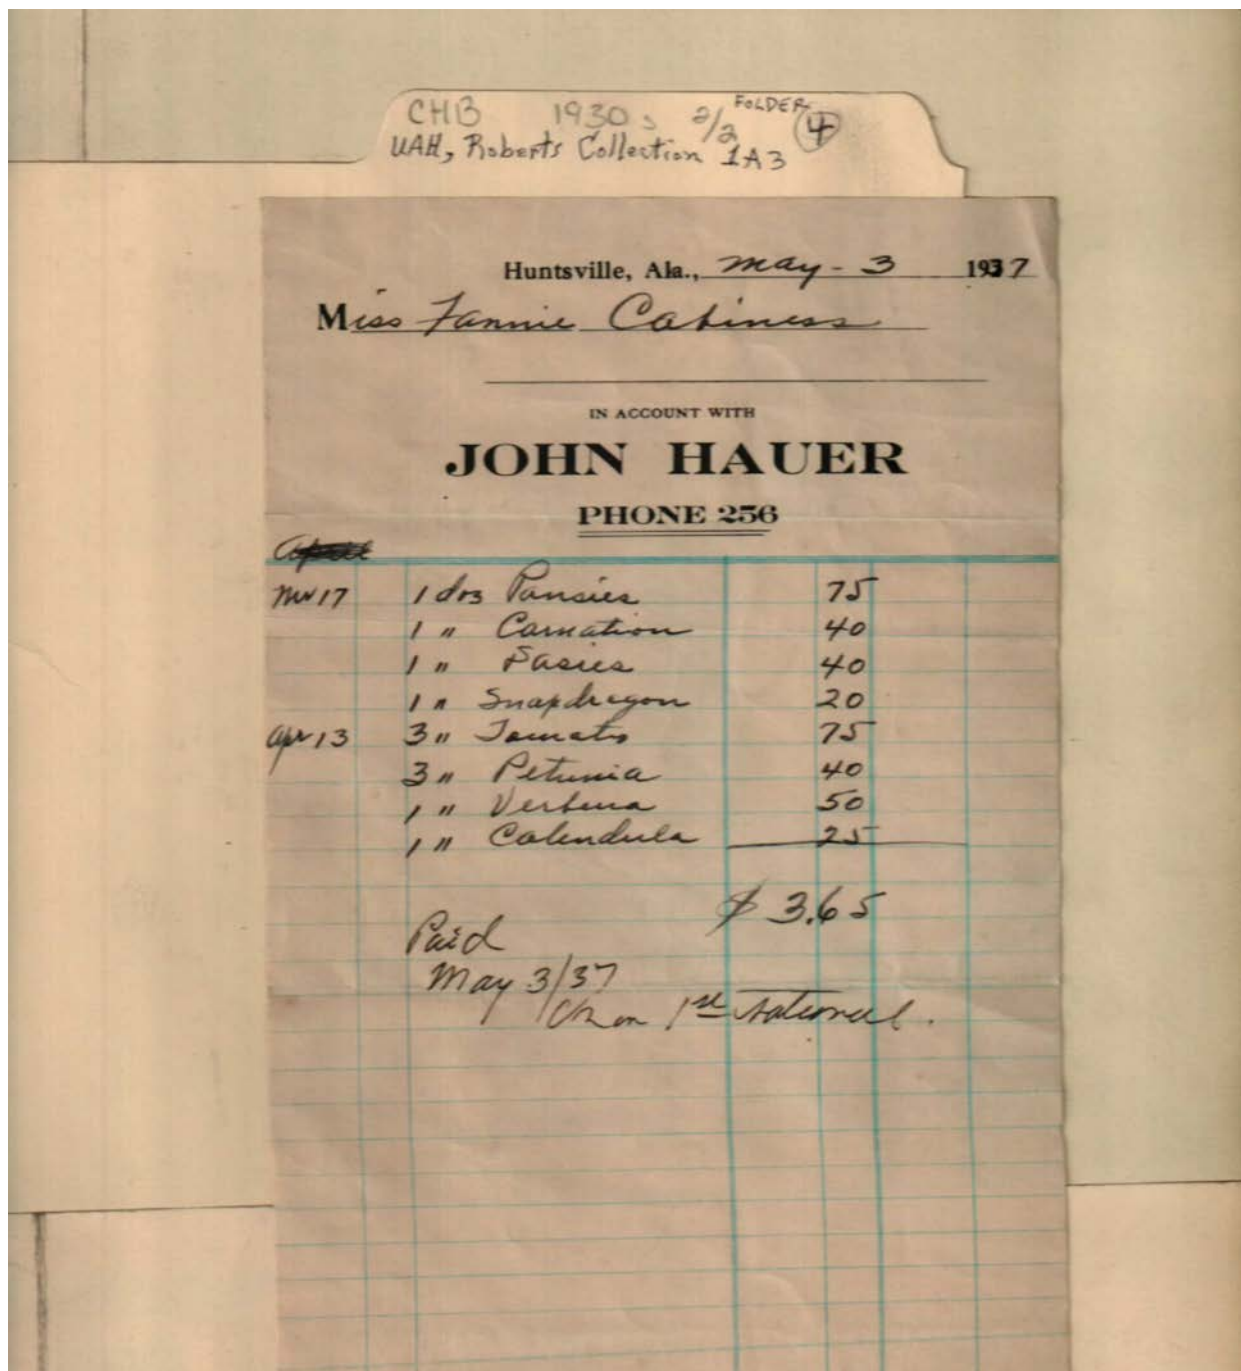 CHB 1930s 2/2 FOLDER 4
UAH, Roberts Collection 1A3
Huntsville, Ala., May - 3 1937
Miss Fannie Cabiness
IN ACCOUNT WITH
JOHN HAUER
PHONE 256
April
Mr 17 1 doz Pansies 75
1 " Carnation 40
1 " 40
1 " Snapdragon 20
Apr 13 3 " Tomato 75
3 " Petunia 40
1 " Verbena 50
1 " Calendula 25
$ 3.65
Paid
May 3/37
Ck on 1st National.